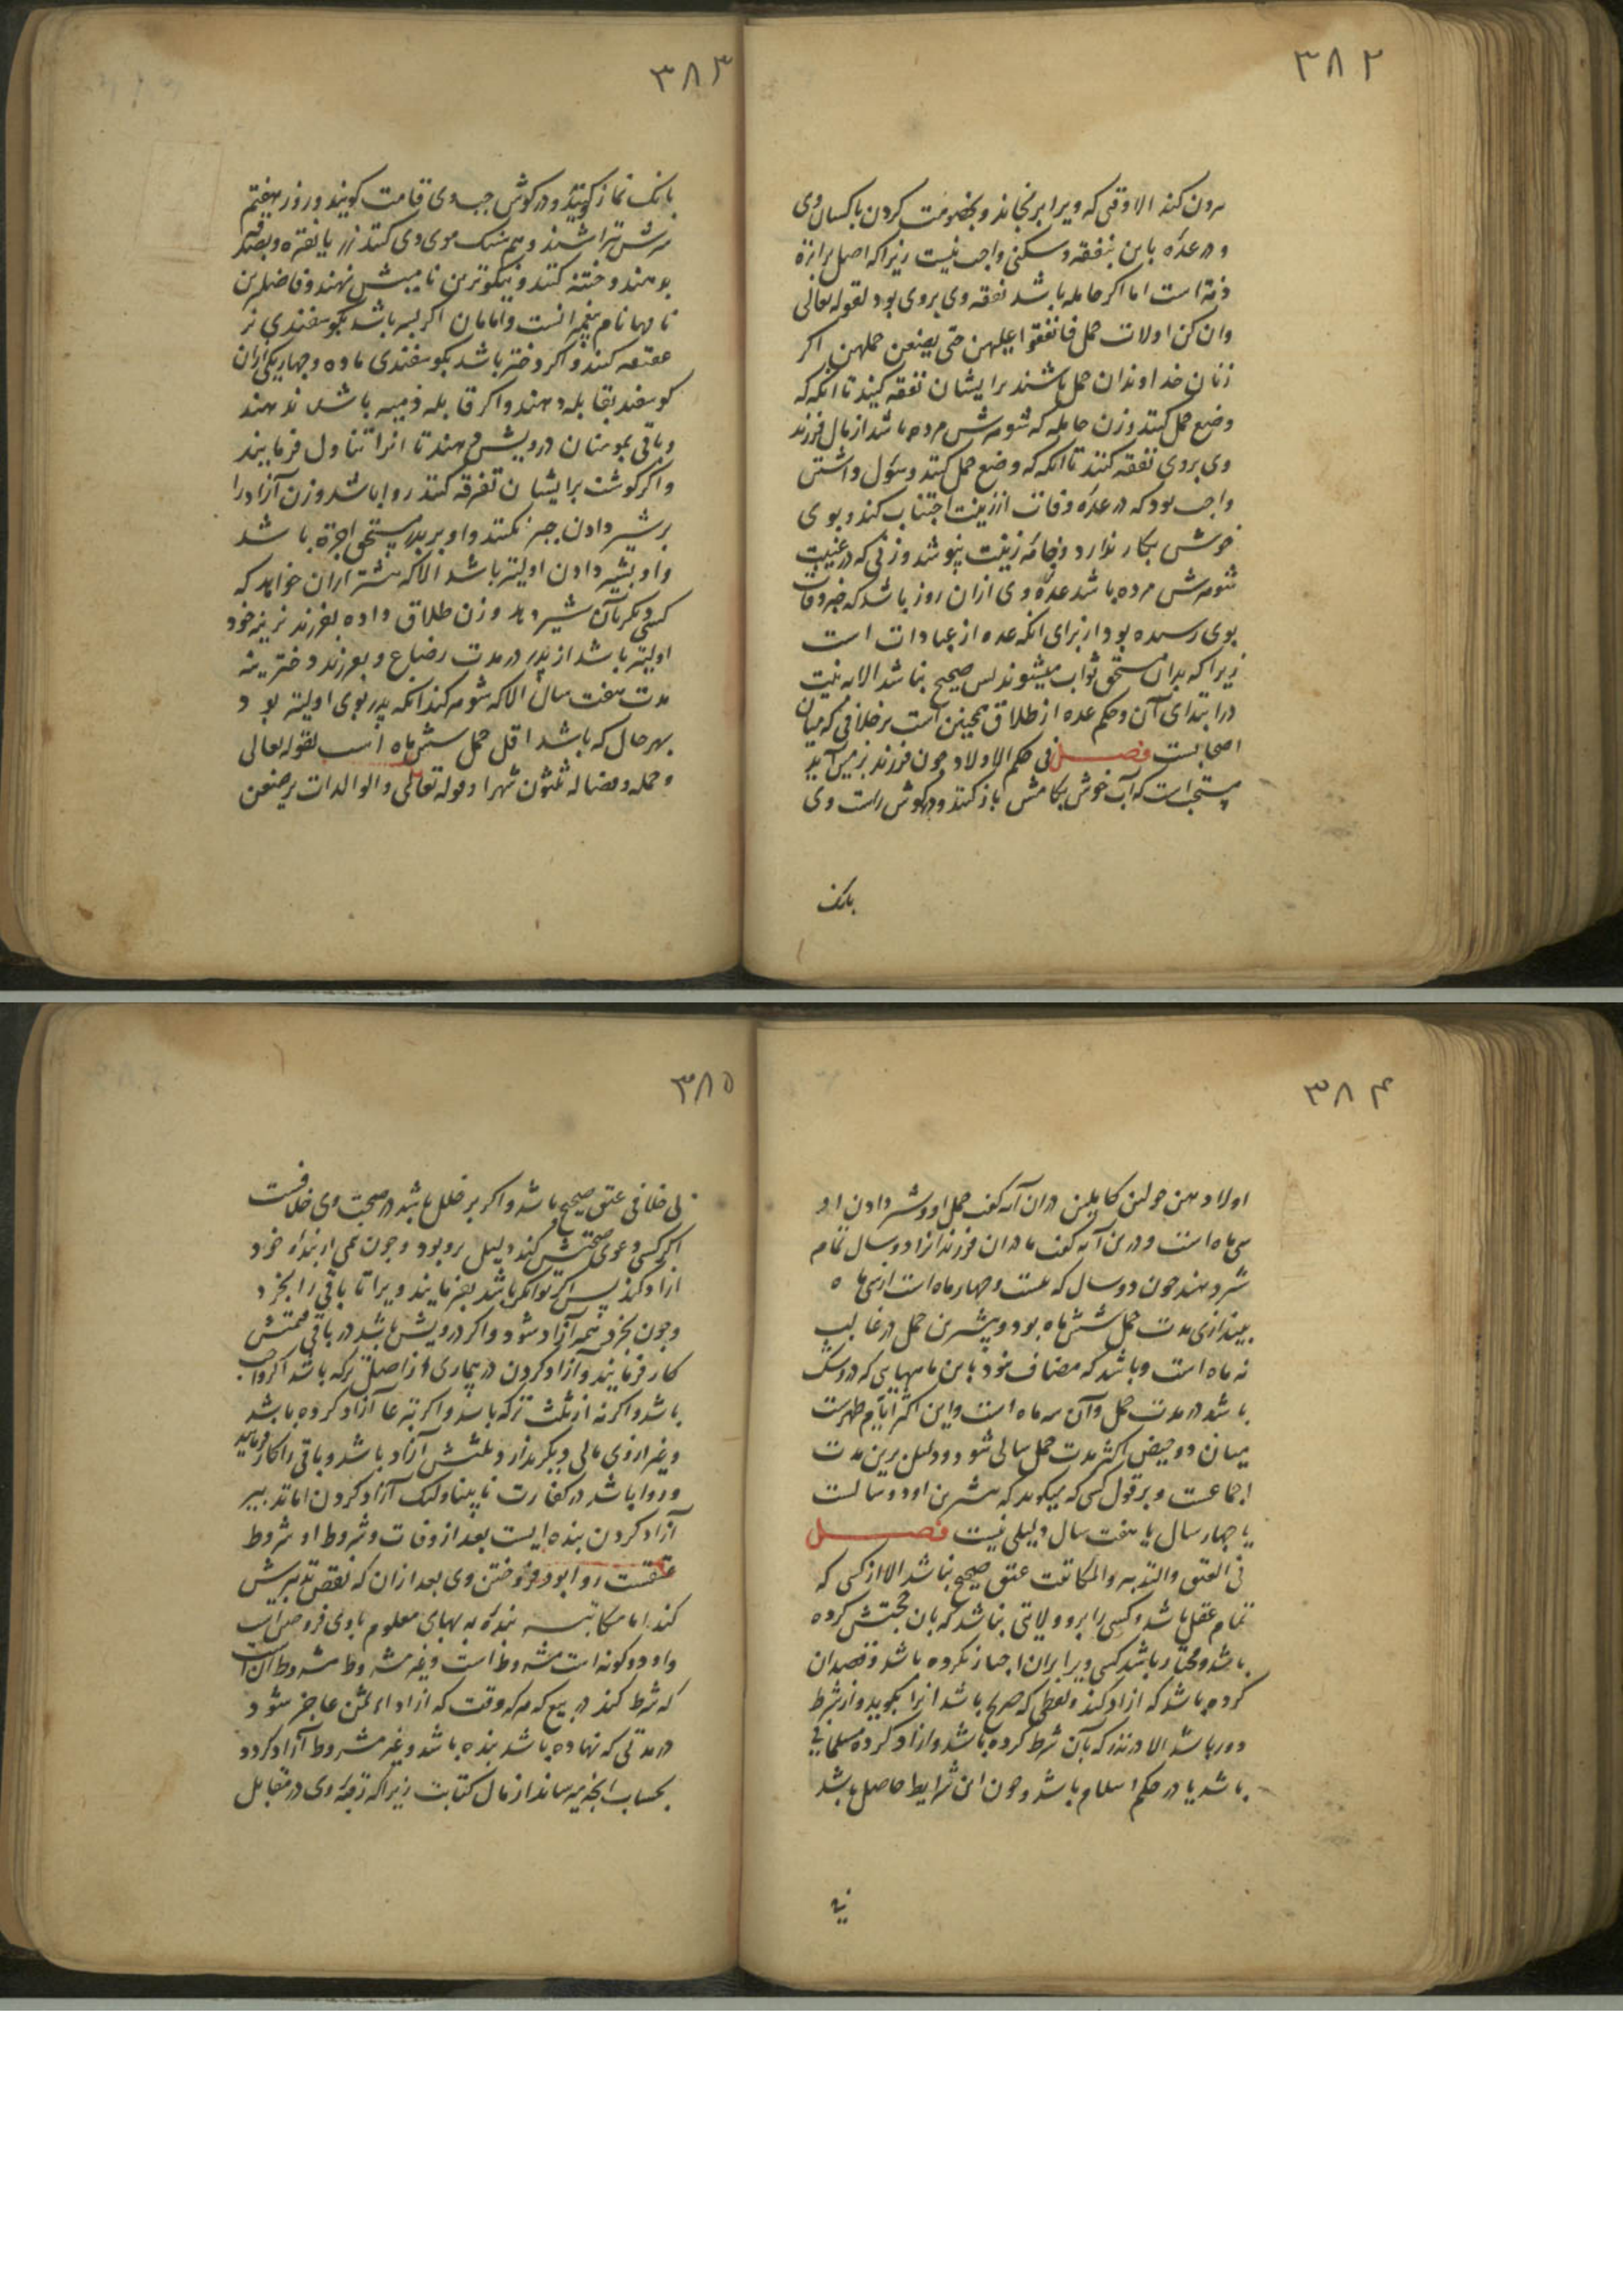 ۳۸۲
بیرون کند الا وقتی که ویرا برنجاند و بخصومت کردن با کسان وی
و در عدّه باین نفقه و سکنی واجب نیست زیرا که اصل براة
ذمّه است اما اگر حامله باشد نفقه وی بروی بود لقوله تعالی
وان کن اولات حمل فانفقوا علیهن حتی یضعن حملهن اگر
زنان خداوندان حمل باشند برایشان نفقه کنید تا آنکه که
وضع حمل کنند و زن حامله که شوهرش مرده باشد از مال فرزند
وی بروی نفقه کنند تا آنکه که وضع حمل کند و سوک داشتن
واجب بود که در عدّه وفات از زینت اجتناب کند و بوی
خوش بکار ندارد و جامه زینت نپوشد و زنی که در غیبت
شوهرش مرده باشد عدّه وی ازان روز باشد که خبر وفات
بوی رسیده بود از برای آنکه عده از عبادات است
زیرا که بدان مستحق ثواب میشوند پس صحیح نباشد الا به نیت
در ابتدای آن و حکم عده از طلاق همچنین است بر خلافی که میان
اصحابست فصل فی حکم الاولاد چون فرزند بزمین آید
مستحب است که آب خوش بکامش باز کنند و در گوش راست وی
بانک
۳۸۳
بانک نماز گویند و در گوش چپ وی قامت گویند و روز هفتم
سرش بتراشند و هم سنک موی وی کنند زر یا نقره و بصدقه
بدهند و ختنه کنند و نیکوترین نامیش نهند و فاضلترین
نامها نام پیغمبرانست و امامان اگر پسر باشد بگوسفندی نر
عقیقه کنند و اگر دختر باشد بگوسفندی ماده و چهاریکی ازان
گوسفند بقابله دهند و اگر قابله ذمیه باشد ندهند
و باقی بمومنان درویش دهند تا آنرا تناول فرمایند
و اگر گوشت برایشان تفرقه کنند روا باشد و زن آزاد را
بر شیر دادن جبر نکنند و او بر پدر مستحق اجرة باشد
و او بشیر دادن اولیتر باشد الا که بیشتر ازان خواهد که
کسی دیگر بآن شیر دهد و زن طلاق داده بفرزند نرینه خود
اولیتر باشد از پدر در مدت رضاع و بفرزند دخترینه
مدت هفت سال الا که شوهر کند آنکه پدر بوی اولیتر بود
بهر حال که باشد اقل حمل شش ماه است لقوله تعالی
وحمله وفصاله ثلثون شهرا وقوله تعالی والوالدات یرضعن
۳۸۴
اولادهن حولین کاملین دران آیه گفت حمل او و شیر دادن او
سی ماه است و درین آیه گفت مادران فرزندانرا دو سال تمام
شیر دهند چون دو سال که بیست و چهار ماه است از سی ماه
بیندازی مدت حمل شش ماه بود و بیشترین حمل در غالب
نه ماه است و باشد که مضاف شود باین ماههایی که در وشک
باشد در مدت حمل و آن سه ماه است و این اکثر ایام طهرست
میان دو حیض اکثر مدت حمل سالی شود و دلیل برین مدت
اجماعست و بر قول کسی که میگوید که بیشترین او دو سالست
یا چهار سال یا هفت سال دلیلی نیست فصل
فی العتق والتدبیر والمکاتبت عتق صحیح نباشد الا از کسی که
تمام عقل باشد و کسی را برو ولایتی نباشد که بان حجتش کرده
باشد و مختار باشد کسی ویرا بران اجبار نکرده باشد و قصد ان
کرده باشد که آزاد کند و لفظی که صریح باشد آنرا بگوید و از شرط
دور باشد الا در نذر که بآن شرط کرده باشد و آزاد کرده مسلمانی
باشد یا در حکم اسلام باشد و چون این شرایط حاصل باشد
۳۸۵
بی خلافی عتق صحیح باشد و اگر بر خلل باشد در صحت وی خلافست
اگر کسی دعوی صحتش کند دلیل برو بود و چون بعضی از بنده خود
آزاد کند پس اگر توانگر باشد بفرمایند ویرا تا باقی را بخرد
و چون بخرد همه آزاد شود و اگر درویش باشد در باقی قیمتش
کار فرمایند و آزاد کردن در بیماری از اصل ترکه باشد اگر واجب
باشد و اگر نه از ثلث ترکه باشد و اگر تبرعا آزاد کرده باشد
و غیر از وی مالی دیگر ندارد ثلثش آزاد باشد و باقی را کار فرمایند
و روا باشد در کفارت نابینا و لنک آزاد کردن اما تدبیر
آزاد کردن بنده ایست بعد از وفات و شروط او شروط
عتقست روا بود فروختن وی بعد ازان که نقض تدبیرش
کند اما مکاتبه بنده به بهای معلوم باوی فروختن است
و او دو گونه است مشروط است و غیر مشروط مشروط آن است
که شرط کند در بیع که هر که وقت که از اداء ثمن عاجز شود
در مدتی که نهاده باشد بنده باشد و غیر مشروط آزاد گردد
بحساب آنچه برساند از مال کتابت زیرا که رقبه وی در مقابل